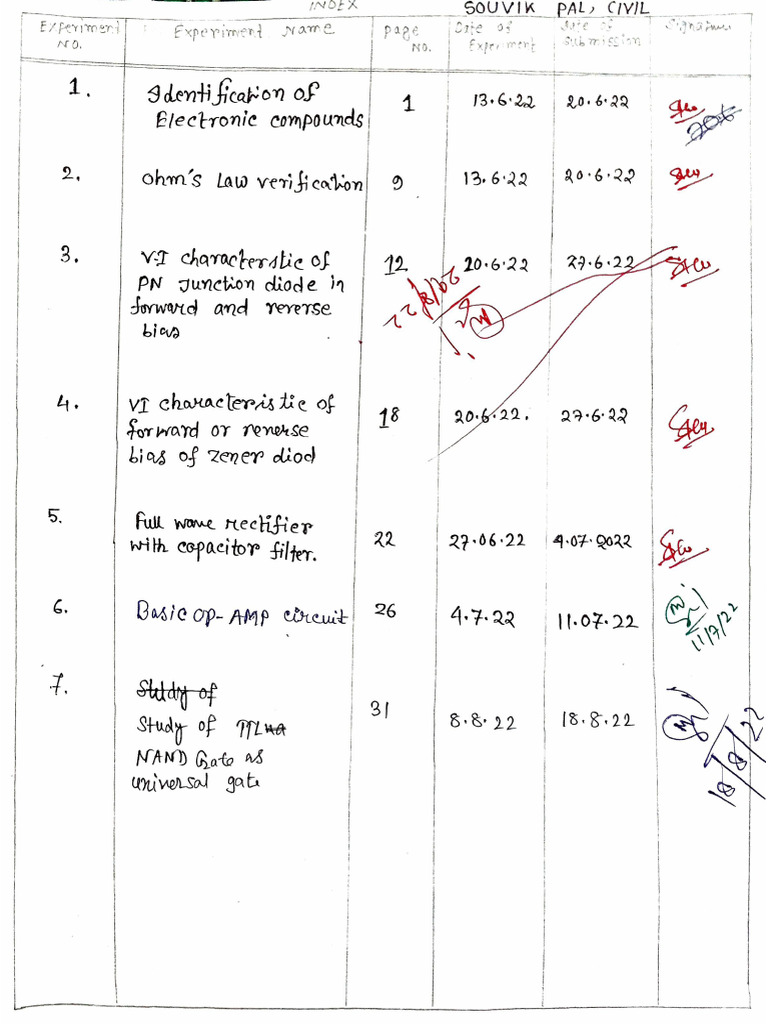 INDEX
SOUVIK PAL, CIVIL
Experiment NO. Experiment Name Page No. Date of Experiment Date of Submission Signature
1. Identification of 1 13.6.22 20.6.22
Electronic compounds
2. Ohm's Law verification 9 13.6.22 20.6.22
3. V-I characterstic of 12 20.6.22 27.6.22
PN Junction diode in
forward and reverse
bias
4. VI characteristic of 18 20.6.22. 27.6.22
forward or renerse
bias of zener diod
5. Full wave rectifier 22 27.06.22 4.07.2022
with copacitor filter.
6. Basic OP-AMP circuit 26 4.7.22 11.07.22
11/7/22
7. Study of 31 8.8.22 18.8.22
Study of
NAND Gate as
universal gate
18/8/22